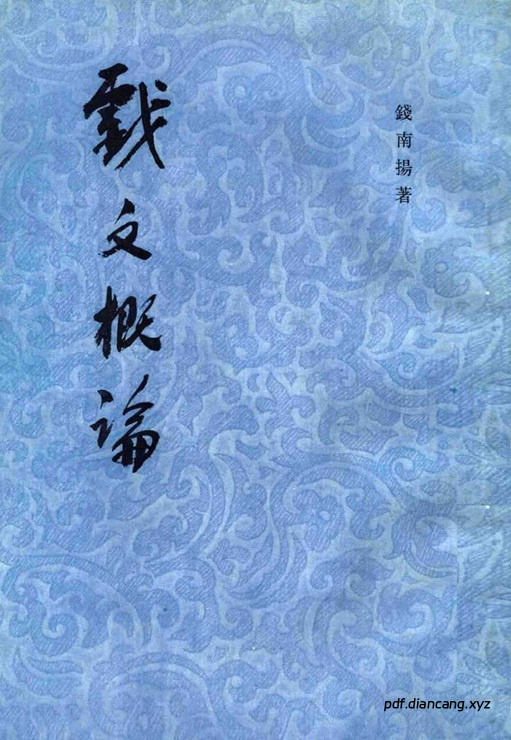 錢南揚著
戲文概論
pdf.diancang.xyz